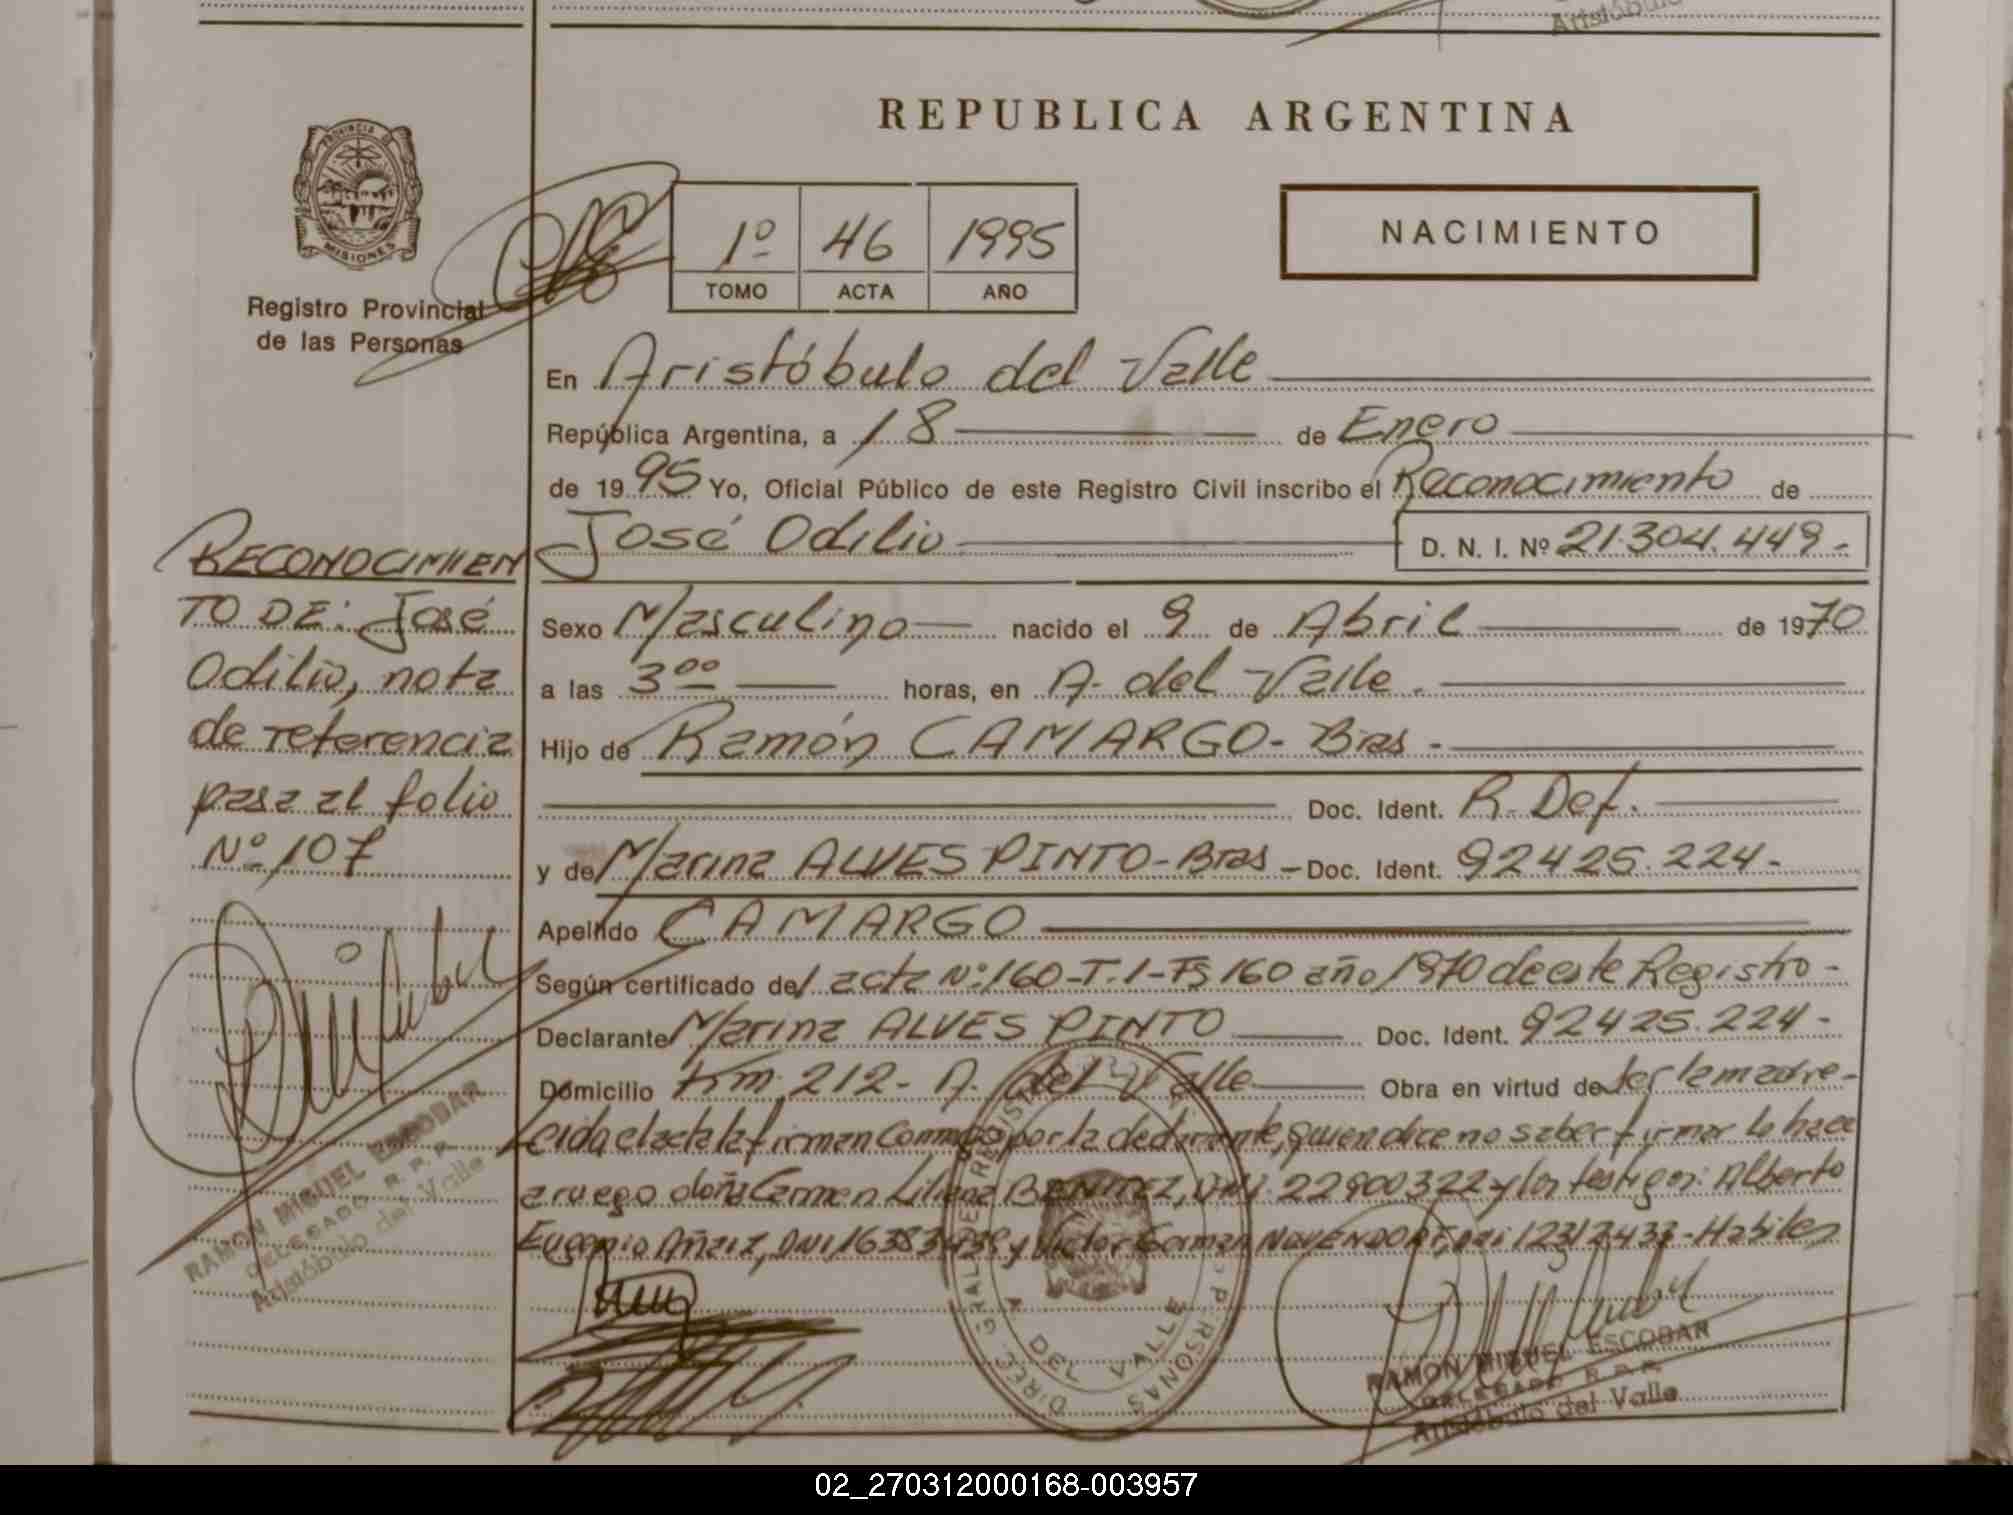 REPUBLICA ARGENTINA
PROVINCIA D
MISIONES
Registro Provincial
de las Personas
1º 46 1995
TOMO ACTA AÑO
NACIMIENTO
En Aristóbulo del Valle
República Argentina, a 18 de Enero
de 1995 Yo, Oficial Público de este Registro Civil inscribo el Reconocimiento de
José Odilio D. N. I. Nº 21.304.449.-
Sexo Masculino nacido el 9 de Abril de 1970
a las 3 00 horas, en A. del Valle.
Hijo de Ramón CAMARGO - Bras -
Doc. Ident. R. Def.
y de Marina ALVES PINTO - Bras - Doc. Ident. 92425.224-
Apellido CAMARGO
Según certificado del acta Nº 160-T.1-Fs 160 año 1970 de este Registro -
Declarante Marina ALVES PINTO Doc. Ident. 92425.224-
Domicilio Km. 212- A. del Valle Obra en virtud de ser la madre-
Leida el acta la firman Conmigo por la declarante, quien dice no saber firmar lo hace
a ruego doña Carmen Liliana BENITEZ, DNI. 22900322 y los testigos: Alberto
Eugenio Añaiz, DNI 16383 y Victor German DNI 12312433 - Habiles
RECONOCIMIEN
TO DE: José
Odilio, nota
de referencia
pasa al folio
Nº 107
RAMON MIGUEL ESCOBAR
DELEGADO R. P. P.
Aristóbulo del Valle
A DEL VALLE
RAMON MIGUEL ESCOBAR
DELEGADO R. P. P.
Aristóbulo del Valle
02_270312000168-003957